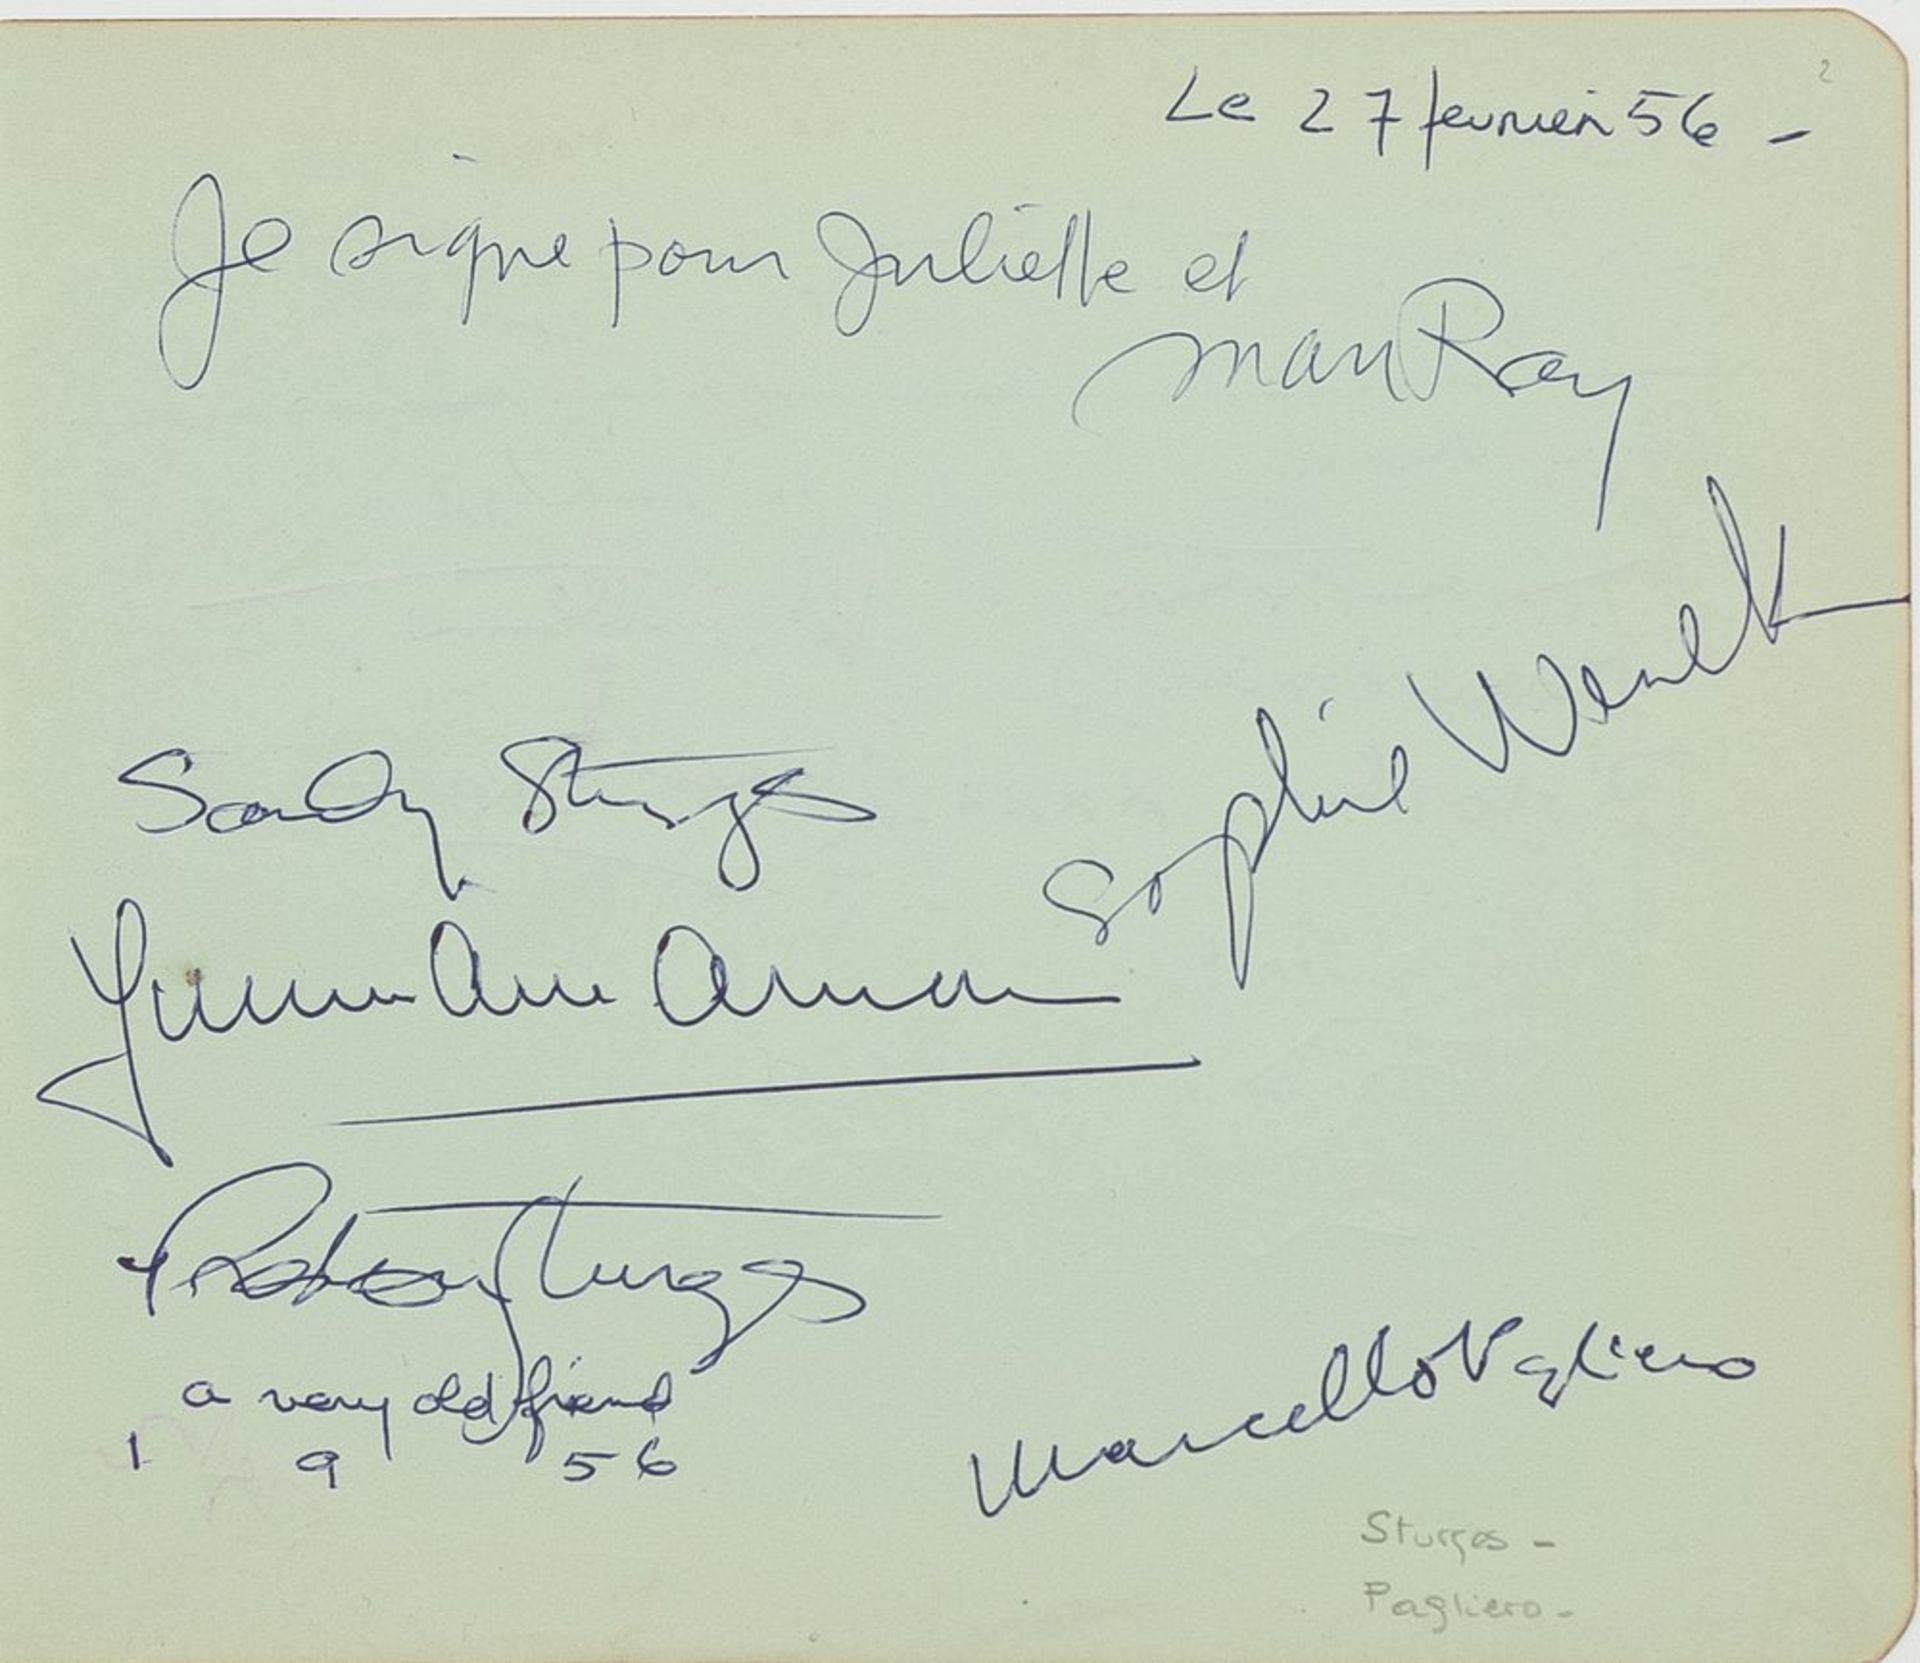 2
Le 27 fevrier 56 -
Je signe pour Juliette et
Man Ray
Sophie
Sandy Sturges
Preston Sturges
a very old friend
1 9 56
Marcello Pagliero
Sturges -
Pagliero -